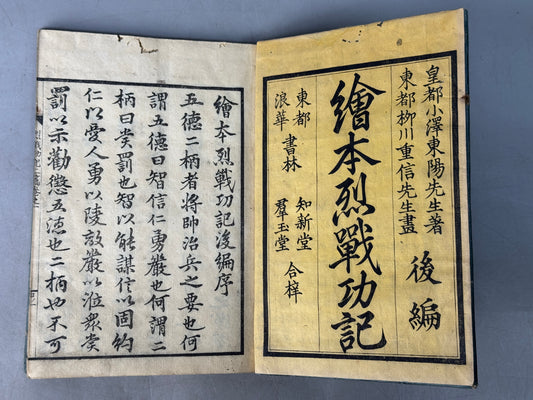 皇都小澤東陽先生著
東都柳川重信先生畫
後編
繪本烈戰功記
東都
浪華
書林
知新堂
羣玉堂
合梓
繪本烈戰功記後編序
五德二柄者將帥治兵之要也何
謂五德曰智信仁勇嚴也何謂二
柄曰賞罰也智以能謀信以固約
仁以愛人勇以陵敵嚴以涖衆賞
罰以示勸懲五德也二柄也不可